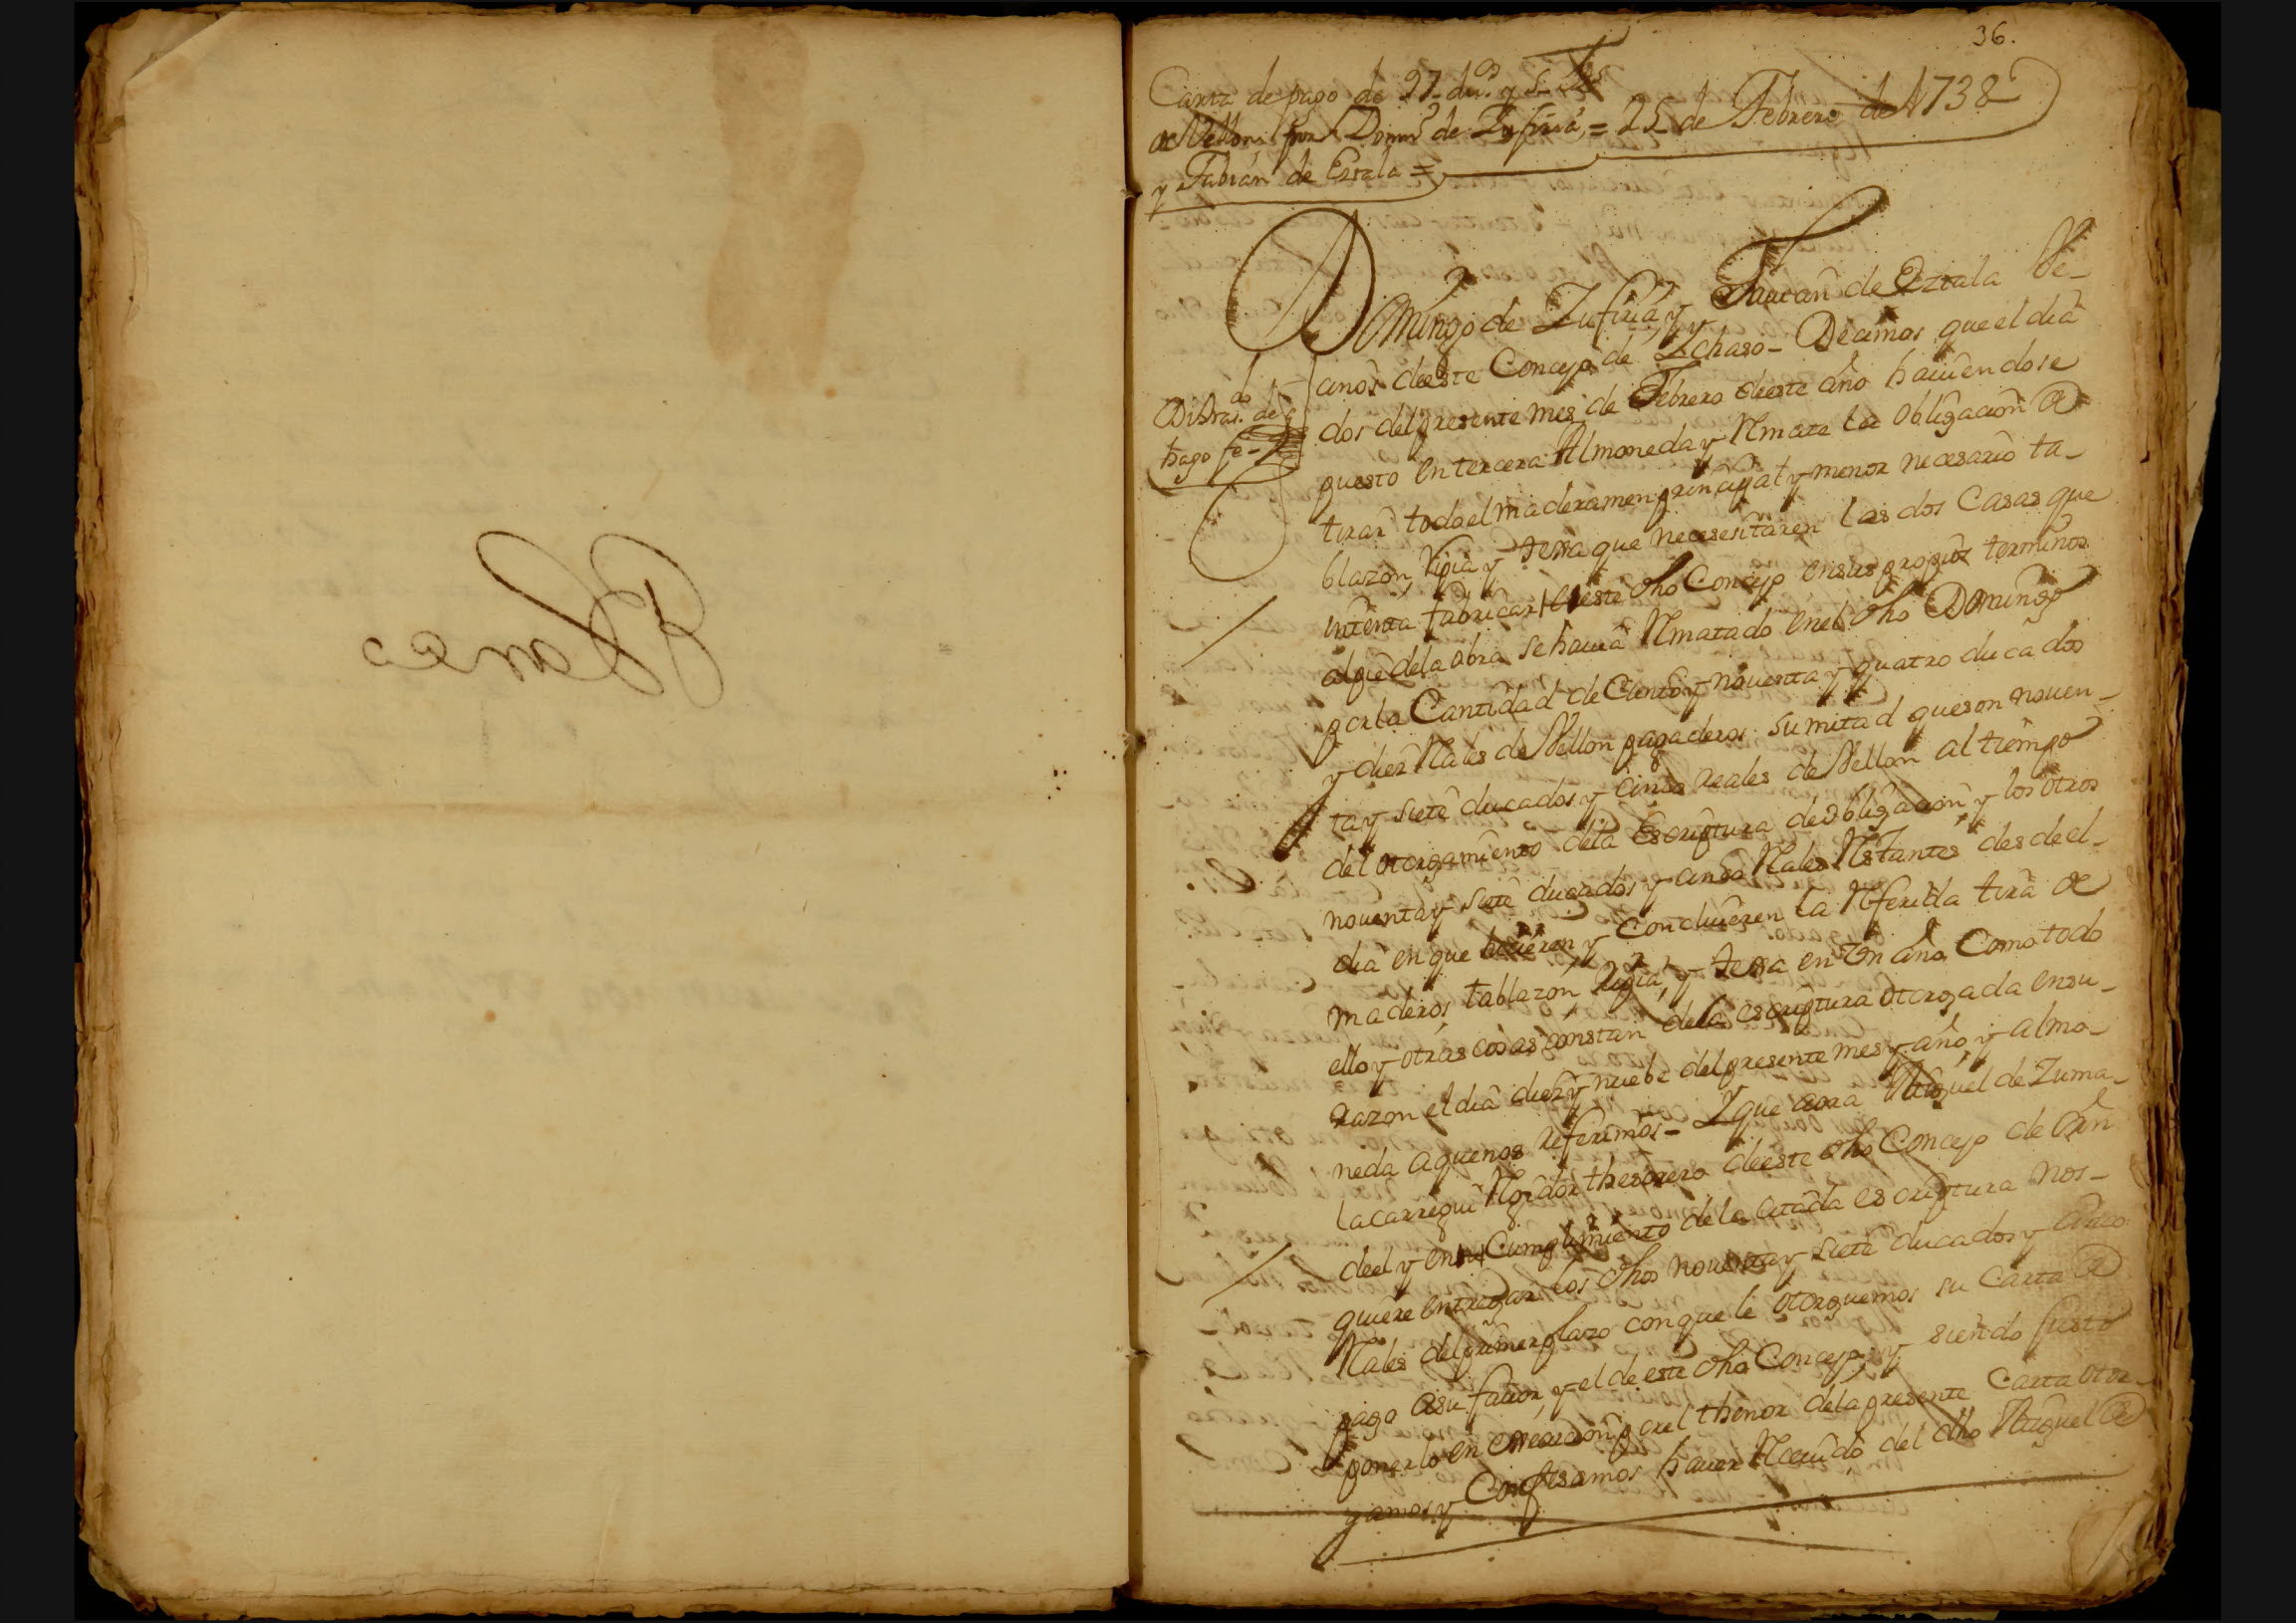 36.
Carta de pago de 97 du.os y 5 Rs
de Vellon por Dom.o de Zufiria, = 25 de Febrero de 1738
y Fabian de Eztala =
Domingo de Zufiria, y Fauian de Eztala Ve-
cinos deeste Concejo de Ichaso - Decimos que el dia
dos del presente mes de Febrero deeste año hauiendose
puesto en tercera Almoneda y Rmate la obligacion de
tirar todo el maderamen principal y menor necesario ta-
blazon, Ripia y tessa que necesesitaren las dos Casas que
intenta fabricar eneste dho Concejo en sus propios terminos
al pie dela obra se hauia Rmatado en el dho Domingo
por la Cantidad de Ciento y nouenta y quatro ducados
y diez Rales de Vellon pagaderos su mitad que son nouen-
ta y siete ducados y cinco reales de Vellon al tiempo
del otorgamiento dela Escriptura de obligacion, y los otros
nouenta y siete ducados y cinco Rales Rstantes desde el
dia en que hicieren y Concluieren la Rferida tira de
maderos tablazon, ripia, y tessa en Un año Como todo
ello y otras cosas constan dela escriptura otorgada en su
razon el dia diez y nuebe del presente mes y año, y almo-
neda aque nos referimos - Y que aora Miguel de Zuma-
lacarregui Rgidor thesorero deeste dho Concejo de Orn
deel y en su Cumplimiento dela Citada escriptura nos
quiere entregar los dhos nouenta y siete ducados y cinco
Rales del primer plazo con que le otorguemos su Carta de
pago a su fauor, y el de este dho Concejo, y siendo Justo
ponerlo en execucion por el thenor dela presente Carta otor-
gamos y Confesamos hauer Rceuido del dho Miguel de
Di tras.do de q
hago fe -
Blanca